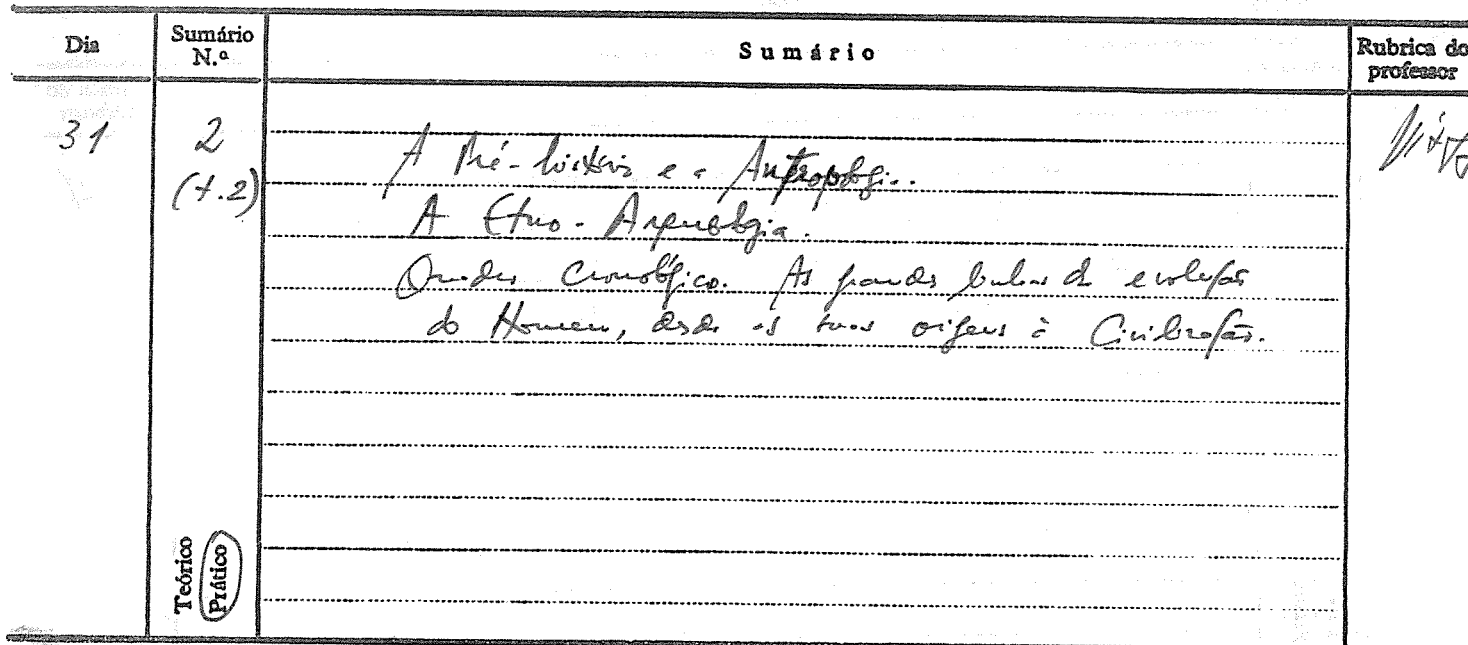 Dia
Sumário N.º
Sumário
Rubrica do professor
31
2
(t.2)
A Pré-história e a Antropologia.
A Etno-Arqueologia.
Quadro Cronológico. As grandes linhas da evolução
do Homem, desde as suas origens à Civilização.
Teórico
Prático